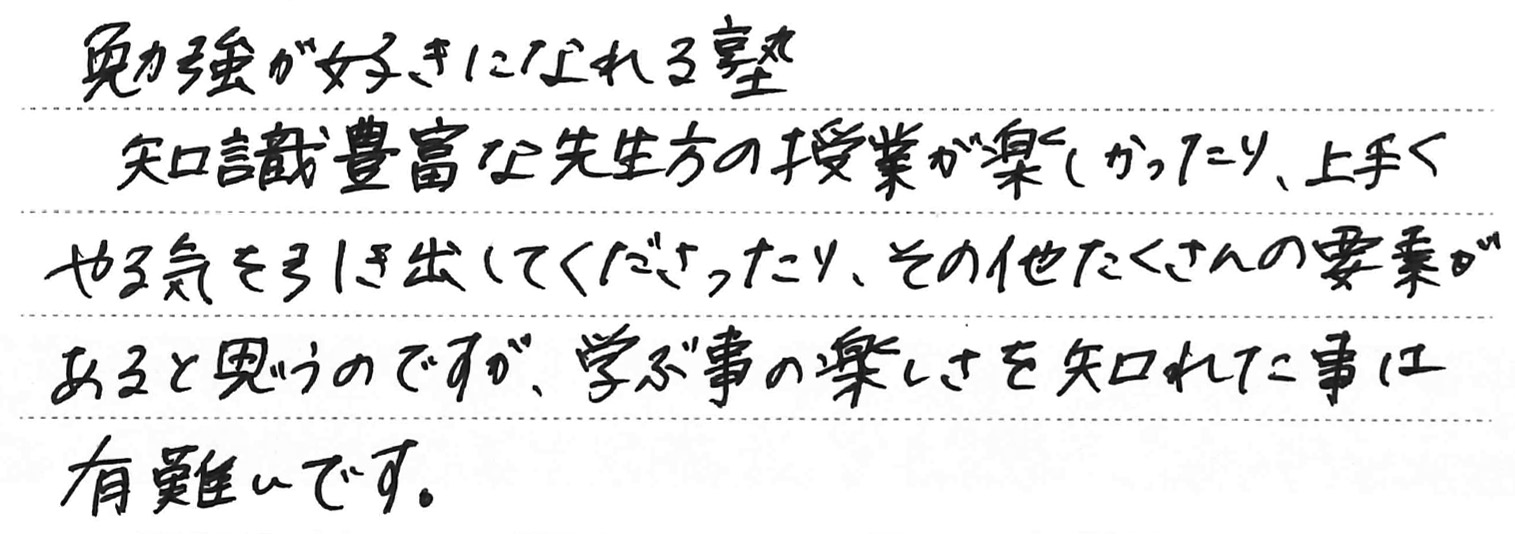 勉強が好きになれる塾
知識豊富な先生方の授業が楽しかったり、上手く
やる気を引き出してくださったり、その他たくさんの要素が
あると思うのですが、学ぶ事の楽しさを知れた事は
有難いです。